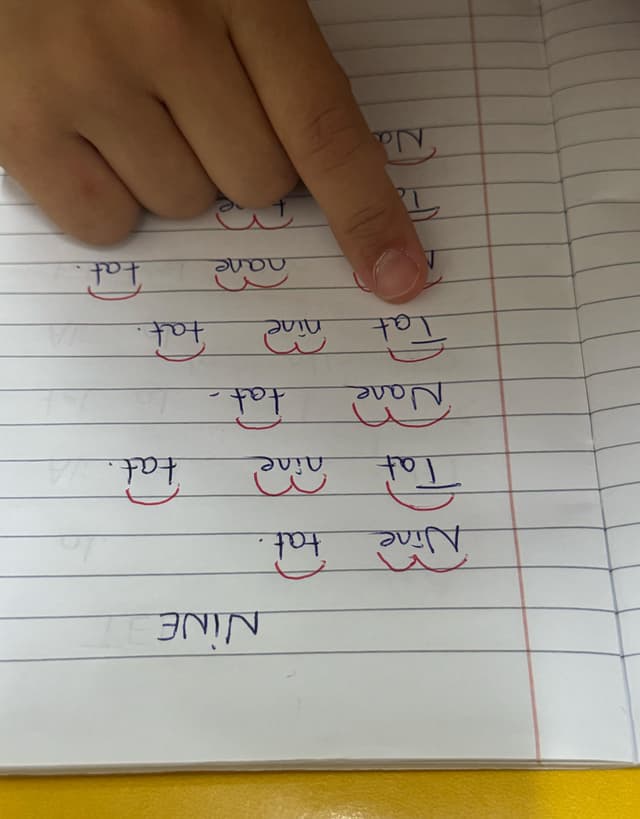 NiNE
Nine tat.
Tat nine tat.
Nane tat.
Tat nine tat.
nane tat.